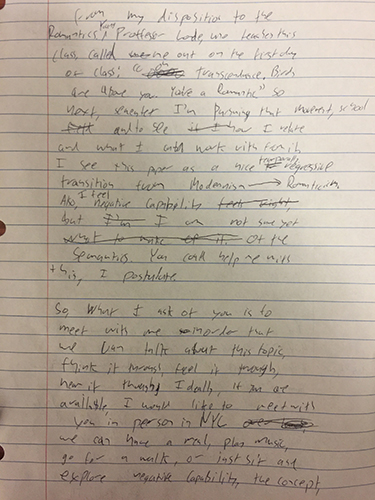 from my disposition to the
Romantics. Professor who teaches this
class, called me out on the first day
of class; "Transcendence, Birds
are above you. You're a Romantic" So
next semester I'm pursuing that movement, school
and to see how I relate
and what I could work with from it.
I see this paper as a nice temporally regressive
transition from Modernism → Romanticism.
Also, I feel negative capability
but I am not sure yet
of the
semantics. You could help me with
this, I postulate
So, what I ask of you is to
meet with me in order that
we can talk about this topic,
think it through, feel it through,
hear it through. Ideally, if you are
available, I would like to meet with
you in person in NYC
we can have a meal, play music,
go for a walk, or just sit and
explore negative capability, the concept